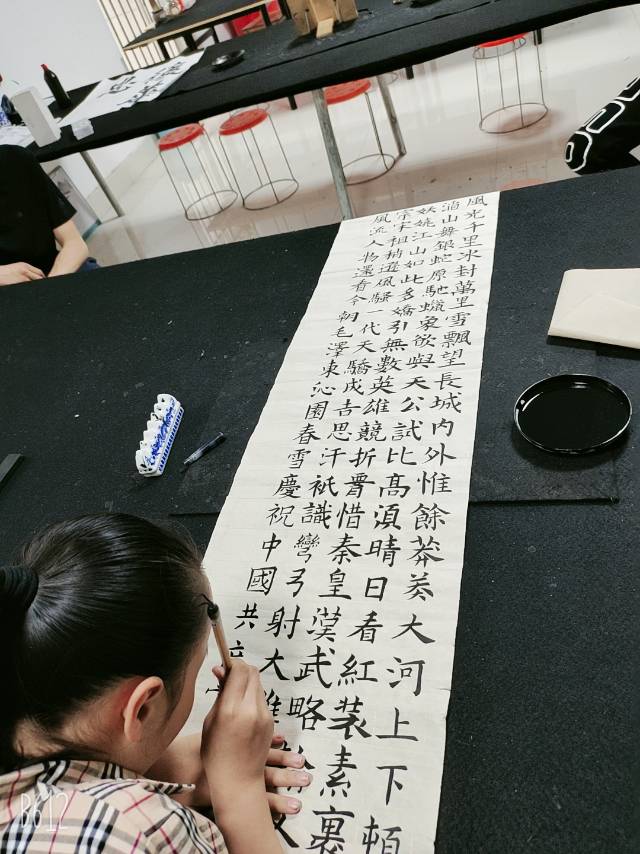 風光千里冰封萬里雪飄望長城内外惟餘莽莽大河上下頓
滔山舞銀蛇原馳蠟象欲與天公試比高須晴日看紅装素裹
妖嬈江山如此多嬌引無數英雄競折腰惜秦皇漢武略
宗宋祖稍遜風騷一代天驕成吉思汗衹識彎弓射大雕
風流人物還看今朝毛澤東沁園春雪慶祝中國共
B612